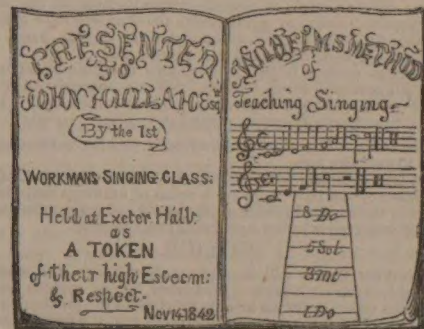 PRESENTED
TO
JOHN HULLAH Esqr.
By the 1st
WORKMANS SINGING CLASS:
Held at Exeter Hall:
as
A TOKEN
of their high Esteem:
& Respect.
Nov 14 1842
WILHELMS METHOD
of
Teaching Singing
8 Do
5 Sol
3 Mi
1 Do